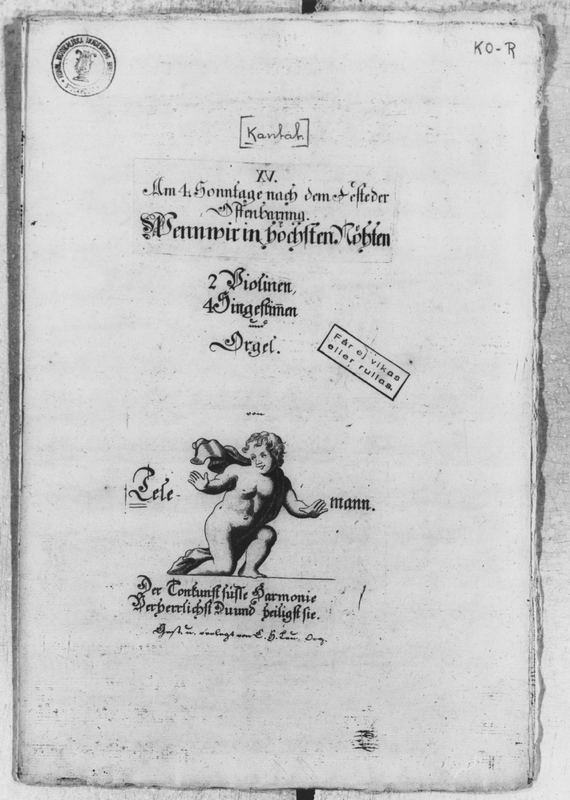 KO-R
[Kantat.]
XV.
Am 4. Sonntage nach dem Feste der
Offenbarung.
Wenn wir in höchsten Nöhten
2 Violinen,
4 Singestim̅en
und
Orgel.
Får ej vikas
eller rullas.
von
Tele-
mann.
Der Tonkunst süsse Harmonie
Verherrlichst Du und heiligst sie.
u. verlegt von C. H. Lau, Org.